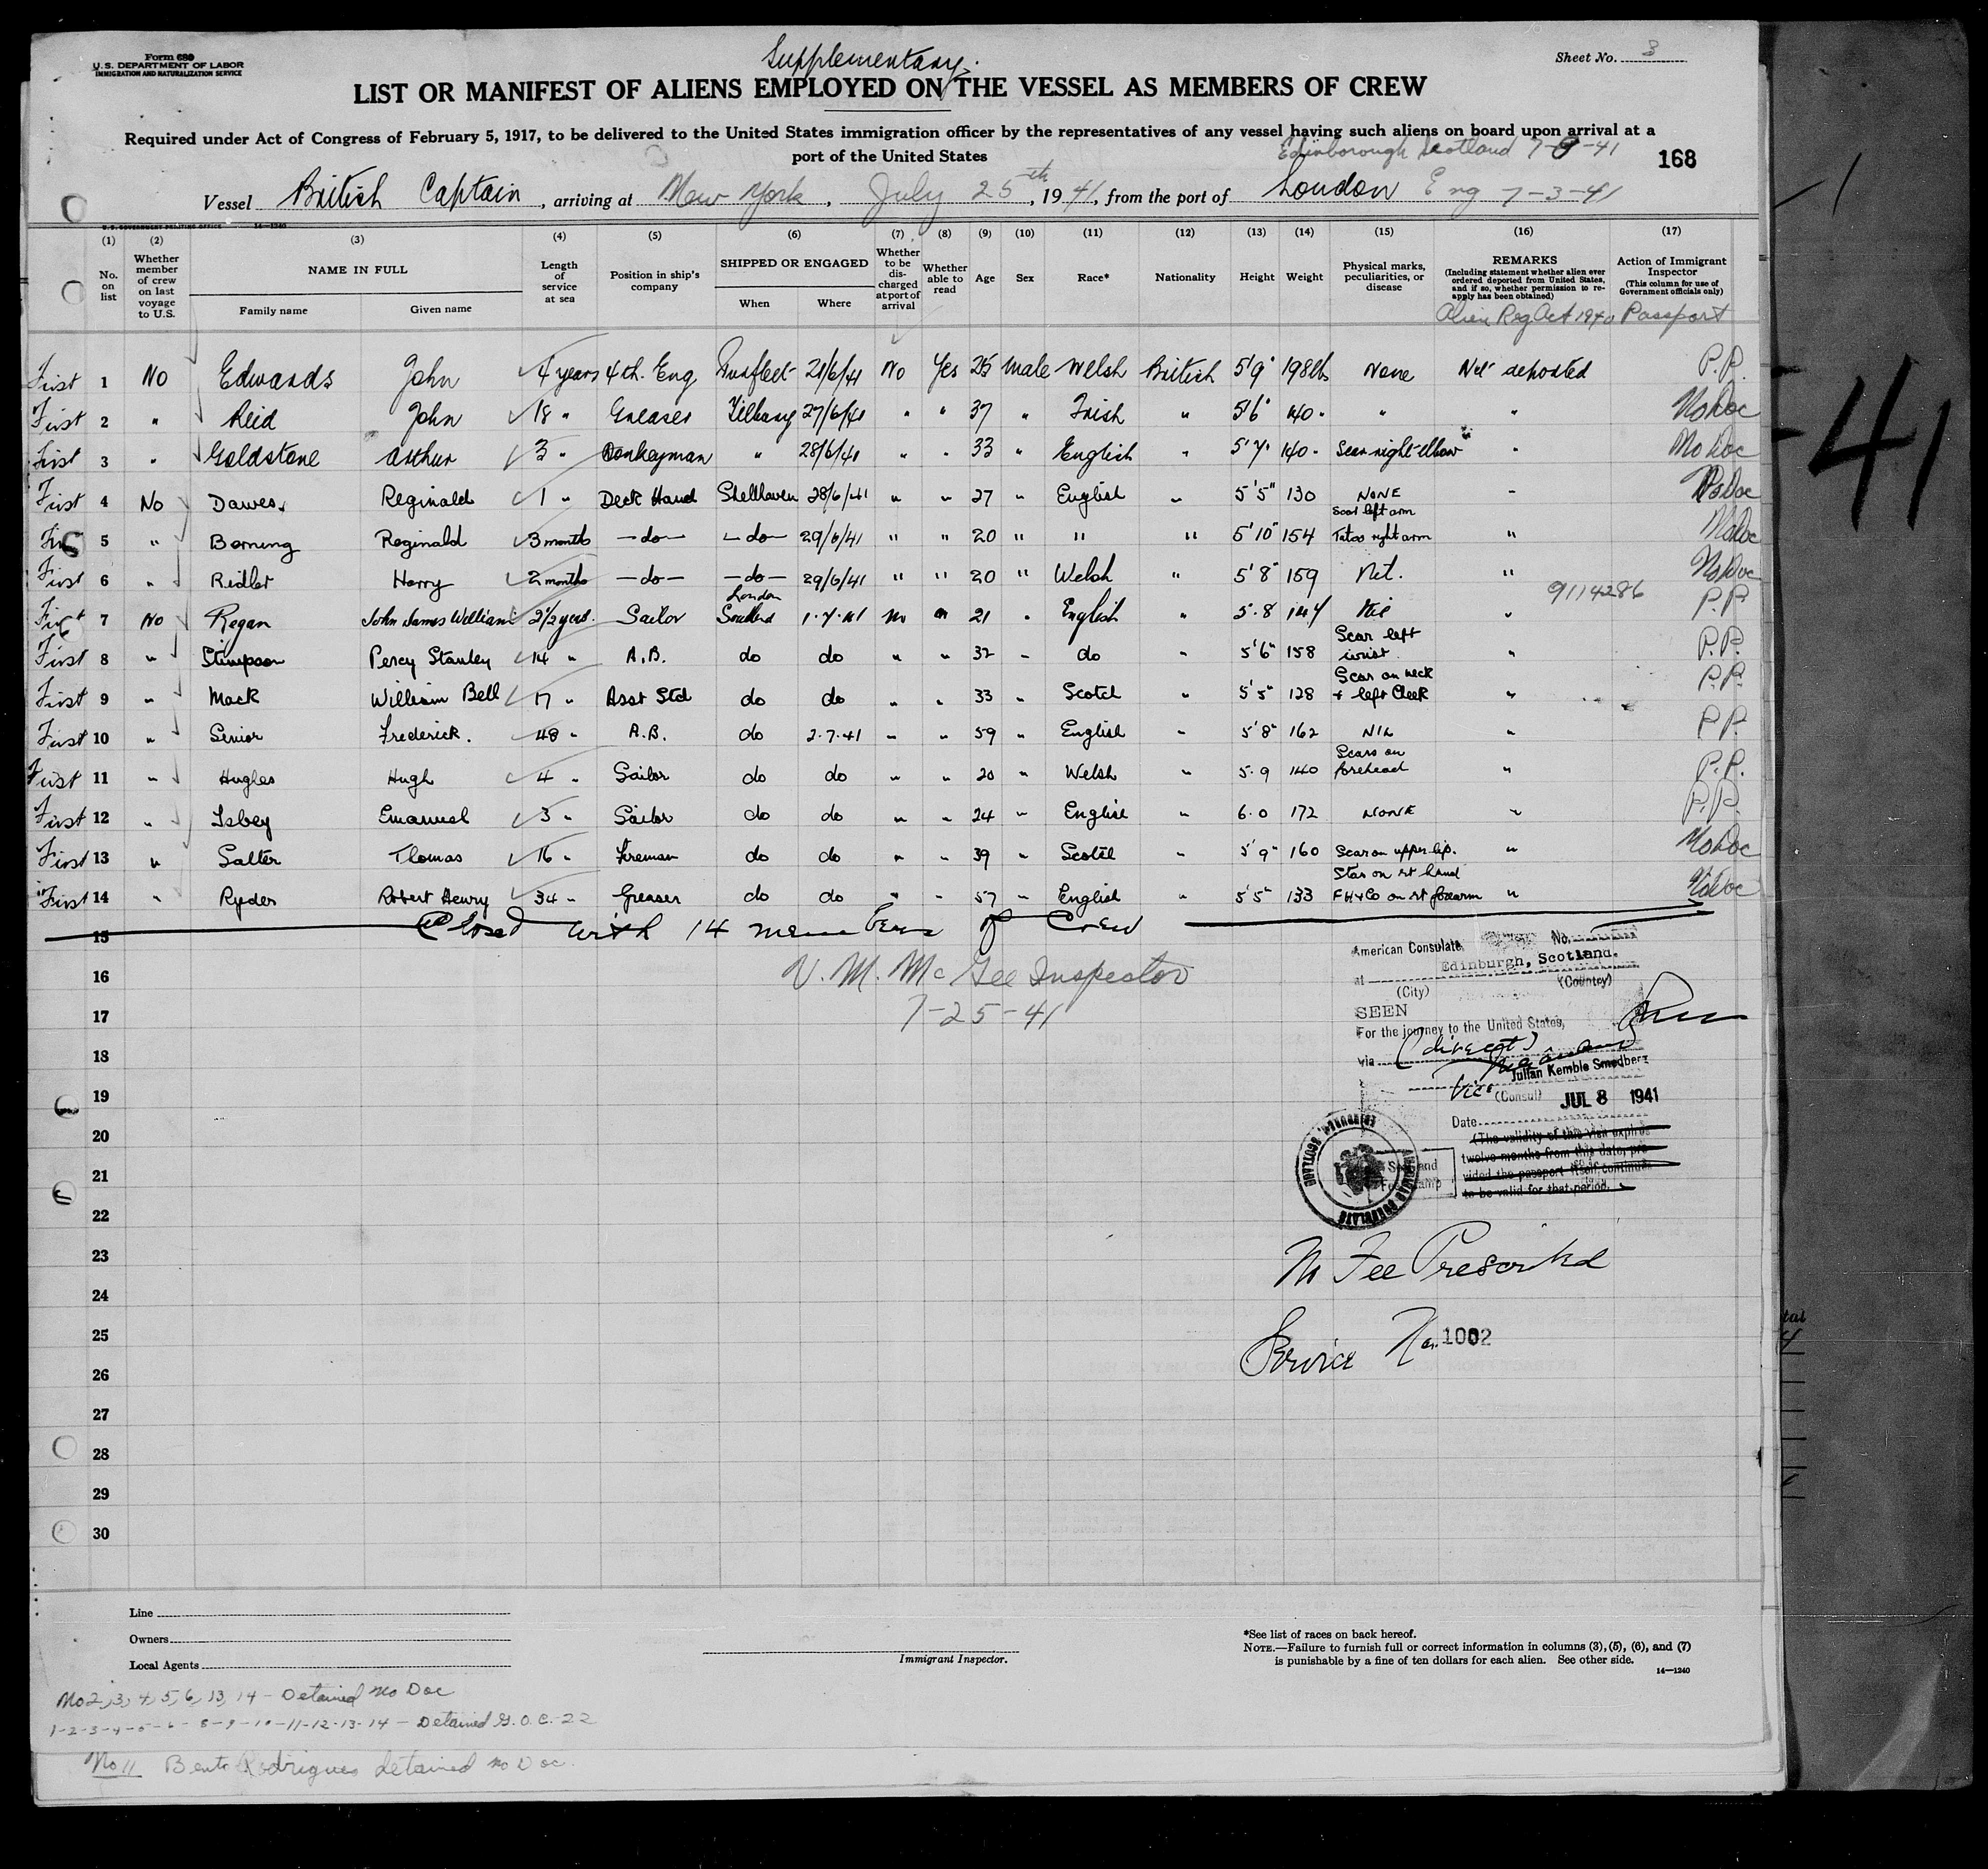 Form 680
U. S. DEPARTMENT OF LABOR
IMMIGRATION AND NATURALIZATION SERVICE
Supplementary.
Sheet No. 3
LIST OR MANIFEST OF ALIENS EMPLOYED ON THE VESSEL AS MEMBERS OF CREW
Required under Act of Congress of February 5, 1917, to be delivered to the United States immigration officer by the representatives of any vessel having such aliens on board upon arrival at a
port of the United States
Edinborough Scotland 7-8-41
168
Vessel British Captain, arriving at New York, July 25th, 1941, from the port of London Eng 7-3-41
U. S. GOVERNMENT PRINTING OFFICE 14-1240
(1) (2) (3) (4) (5) (6) (7) (8) (9) (10) (11) (12) (13) (14) (15) (16) (17)
No. on list
Whether member of crew on last voyage to U.S.
NAME IN FULL
Family name
Given name
Length of service at sea
Position in ship's company
SHIPPED OR ENGAGED
When
Where
Whether to be discharged at port of arrival
Whether able to read
Age
Sex
Race*
Nationality
Height
Weight
Physical marks, peculiarities, or disease
REMARKS
(Including statement whether alien ever ordered deported from United States, and if so, whether permission to reapply has been obtained)
Alien Reg Act 1940
Action of Immigrant Inspector
(This column for use of Government officials only)
Passport
First 1 No Edwards John 4 years 4th. Eng 28/6/41 No Yes 25 Male Welsh British 5'9" 198lbs None Not deported P.P.
First 2 " Reid John 18 " Greaser Tilbury 27/6/41 " " 37 " Irish " 5'6" 140 " " " No Doc
First 3 " Goldstone Arthur 3 " Donkeyman " 28/6/41 " " 33 " English " 5'7" 140 " Scar right elbow " No Doc
First 4 No Dawes Reginald 1 " Deck Hand Shellhaven 28/6/41 " " 27 " English " 5'5" 130 NONE " No Doc
First 5 " Berning Reginald 3 months -do- -do- 29/6/41 " " 20 " " " 5'10" 154 Scar left arm Tatoo right arm " No Doc
First 6 " Ridler Harry 2 months -do- -do- 29/6/41 " " 20 " Welsh " 5'8" 159 Nil. " No Doc
9114286
First 7 No Regan John James William 2 1/2 years. Sailor London 1.7.41 No " 21 " English " 5.8 147 Nil " P.P.
First 8 " Stimpson Percy Stanley 14 " A.B. do do " " 32 " do " 5'6" 158 Scar left wrist. " P.P.
First 9 " Mack William Bell 17 " Asst Std do do " " 33 " Scotch " 5'5" 128 Scar on neck + left Cheek " P.P.
First 10 " Senior Frederick. 48 " A.B. do 2.7.41 " " 59 " English " 5'8" 162 NIL " P.P.
First 11 " Hughes Hugh 4 " Sailor do do " " 20 " Welsh " 5.9 140 Scars on forehead " P.P.
First 12 " Isbey Emanuel 3 " Sailor do do " " 24 " English " 6.0 172 NONE " P.P.
First 13 " Salter Thomas 16 " Fireman do do " " 39 " Scotch " 5'9" 160 Scar on upper lip. " No Doc
First 14 " Ryder Robert Henry 34 " Greaser do do " " 57 " English " 5'5" 133 Star on rt hand on rt forearm " No Doc
Closed with 14 members of Crew
15
16
17
18
19
20
21
22
23
24
25
26
27
28
29
30
V. M. McGee Inspector
7-25-41
American Consulate No.
at Edinburgh, Scotland.
(City) (Country)
SEEN
For the journey to the United States,
via (direct)
Julian Kemble Smedberg
Vice (Consul)
JUL 8 1941
Date
(The validity of this visa expires
twelve months from this date, provided the passport itself continues
to be valid for that period.
AMERICAN CONSULATE
EDINBURGH, SCOTLAND
No Fee Prescribed
Service No. 1002
Line
Owners
Local Agents
Immigrant Inspector.
*See list of races on back hereof.
NOTE.—Failure to furnish full or correct information in columns (3), (5), (6), and (7)
is punishable by a fine of ten dollars for each alien. See other side.
14-1240
No 2, 3, 4, 5, 6, 13, 14 - Detained no Doc
1-2-3-4-5-6-8-9-10-11-12-13-14 - Detained G.O.C.-22
No 11 Bento Rodrigues detained no Doc.
41